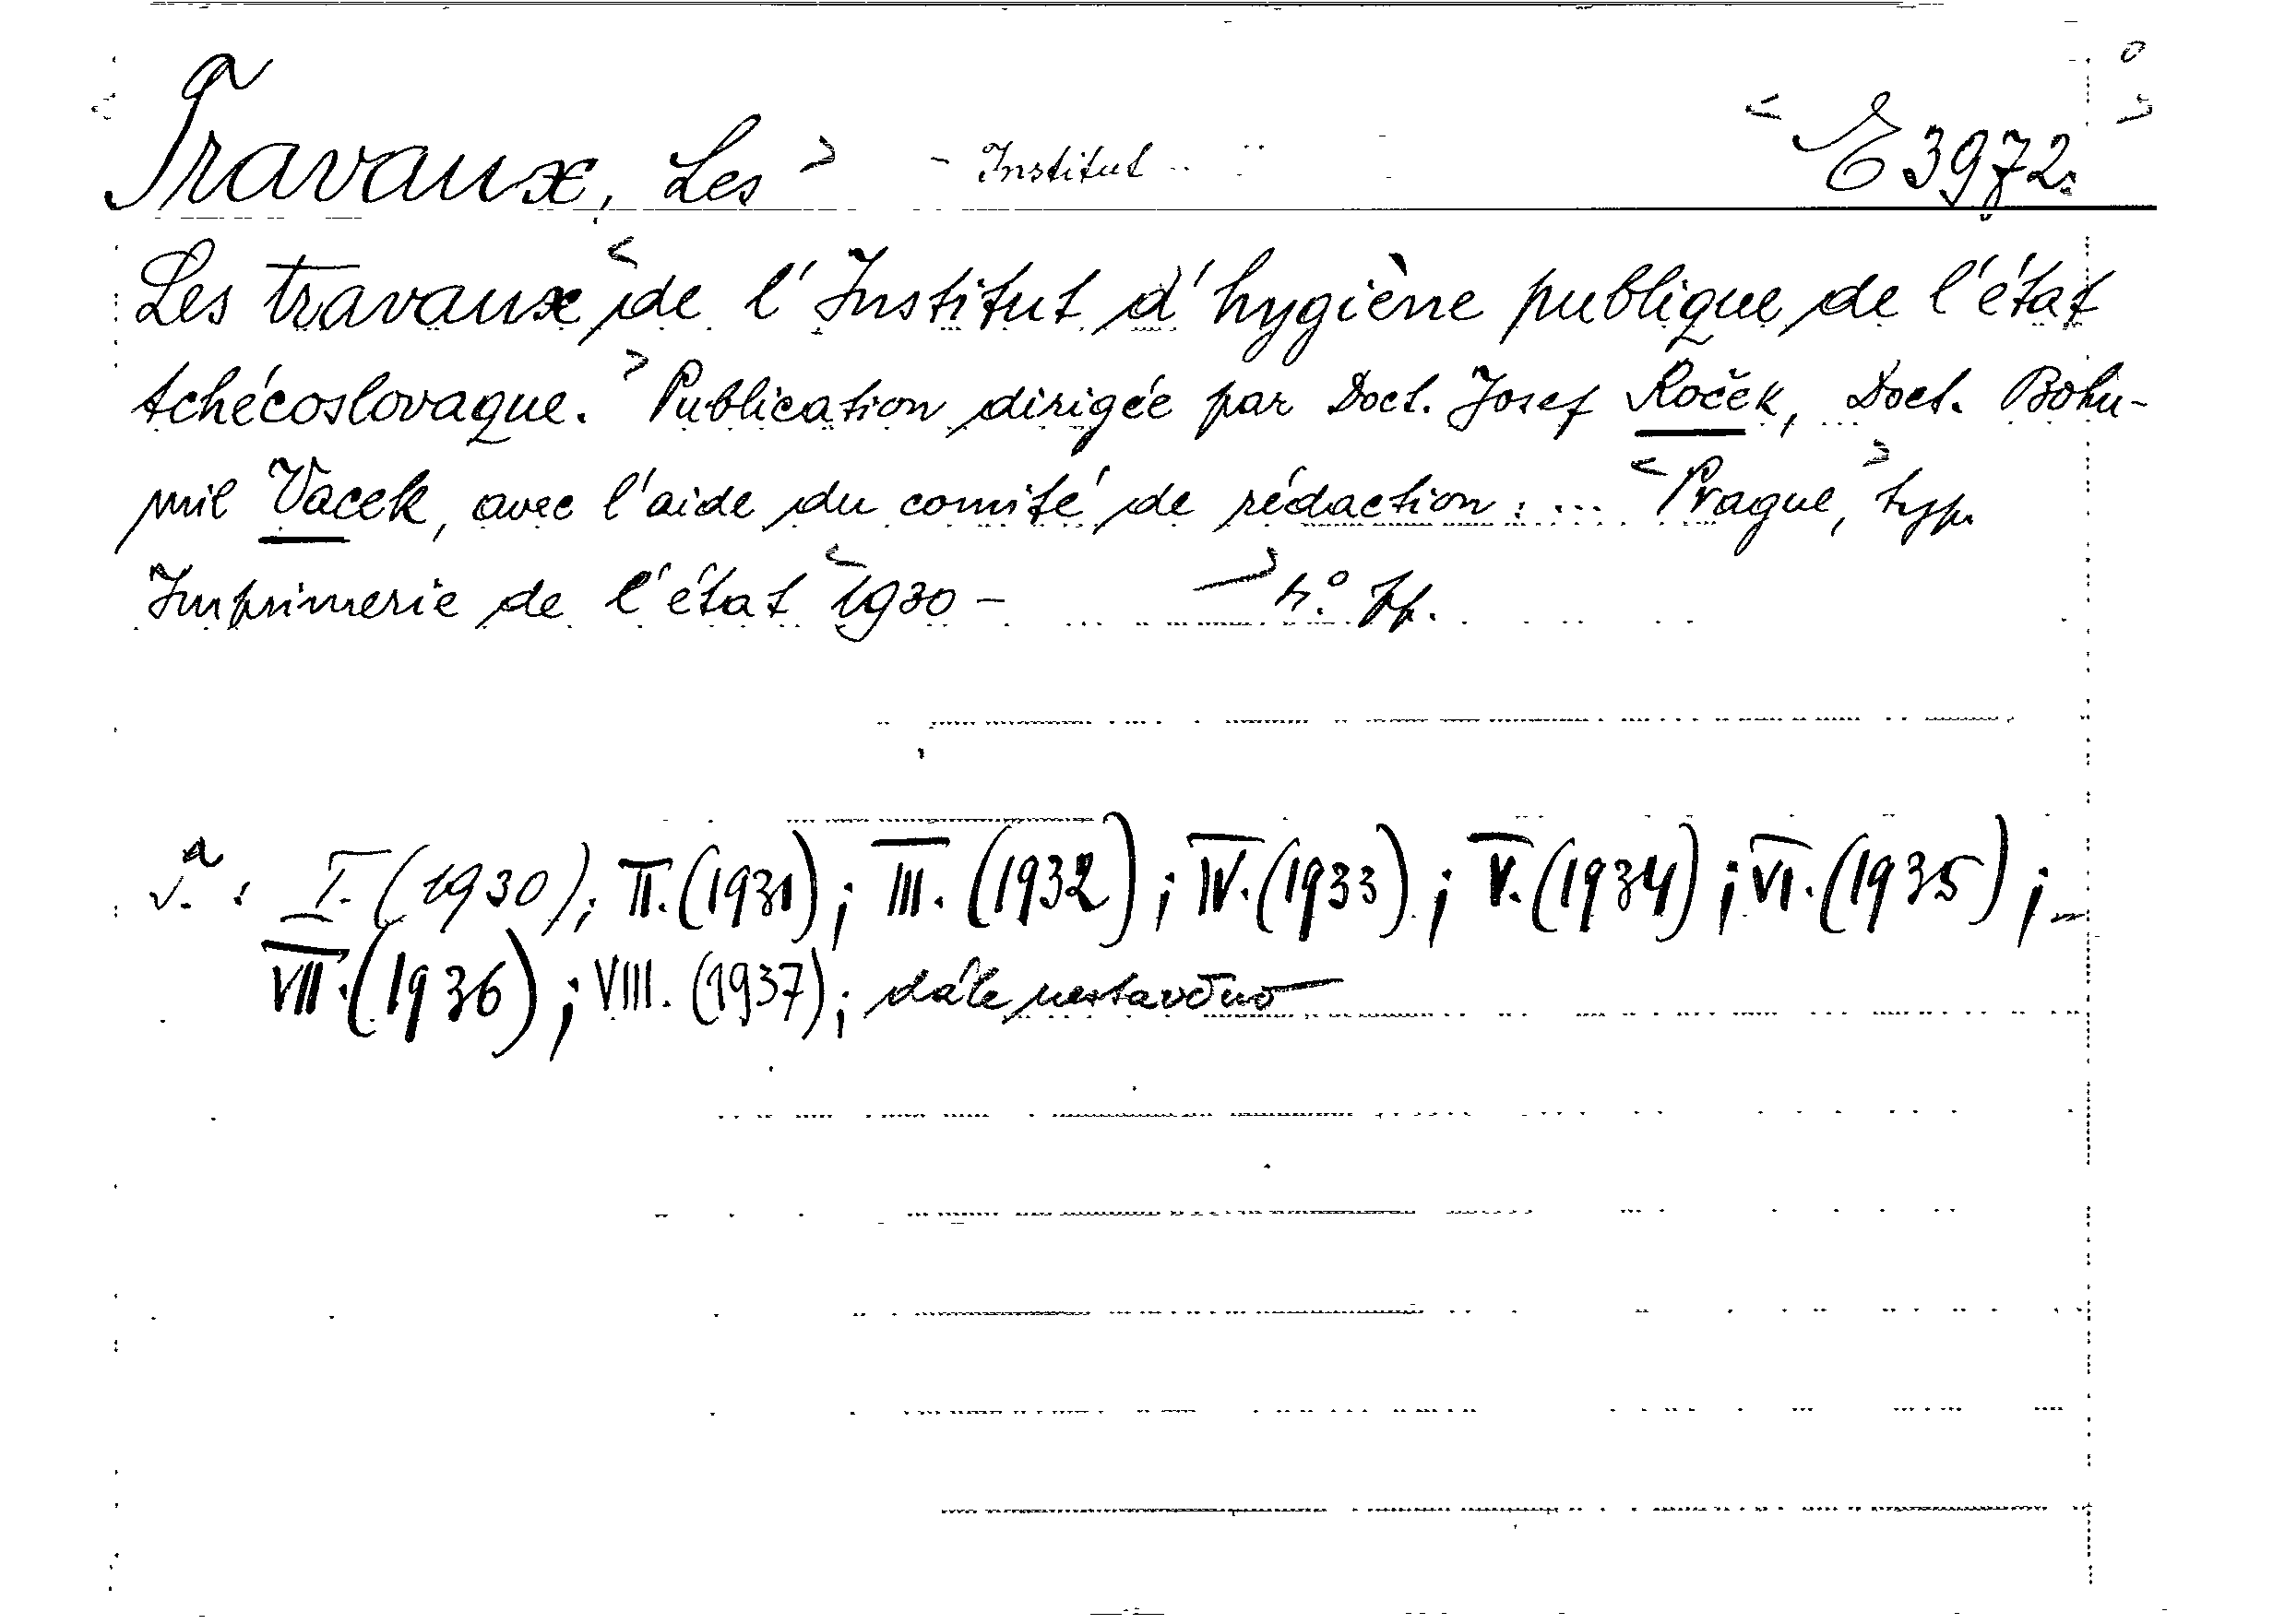 Travaux, Les > - Institut .. < E 3972. >
Les travaux < de l'Institut d'hygiène publique de l'état
tchécoslovaque. > Publication dirigée par Doct. Josef Roček, Doct. Bohu-
mil Vacek, avec l'aide du comité de rédaction: ... < Prague, > typ.
Imprimerie de l'état < 1930 - > 4°.
va.: I. (1930); II. (1931); III. (1932); IV. (1933); V. (1934); VI. (1935);
VII. (1936); VIII. (1937); dále